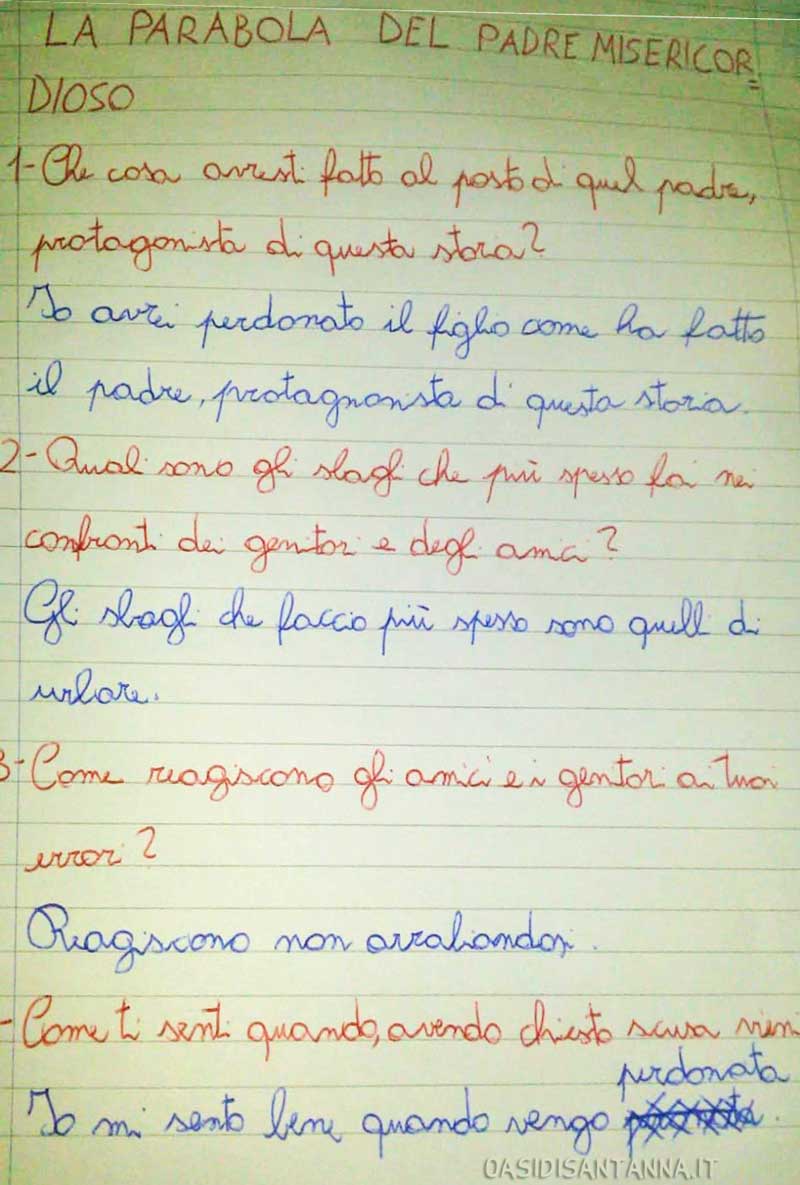 LA PARABOLA DEL PADRE MISERICOR=
DIOSO
1-Che cosa avresti fatto al posto di quel padre,
protagonista di questa storia?
Io avrei perdonato il figlio come ha fatto
il padre, protagnonista di questa storia.
2-Quali sono gli sbagli che più spesso fai nei
confronti dei genitori e degli amici?
Gli sbagli che faccio più spesso sono quelli di
urlare.
3-Come reagiscono gli amici e i genitori ai tuoi
errori?
Reagiscono non arrabiandosi.
-Come ti senti quando, avendo chiesto scusa vieni
perdonata
Io mi sento bene quando vengo .
OASIDISANTANNA.IT